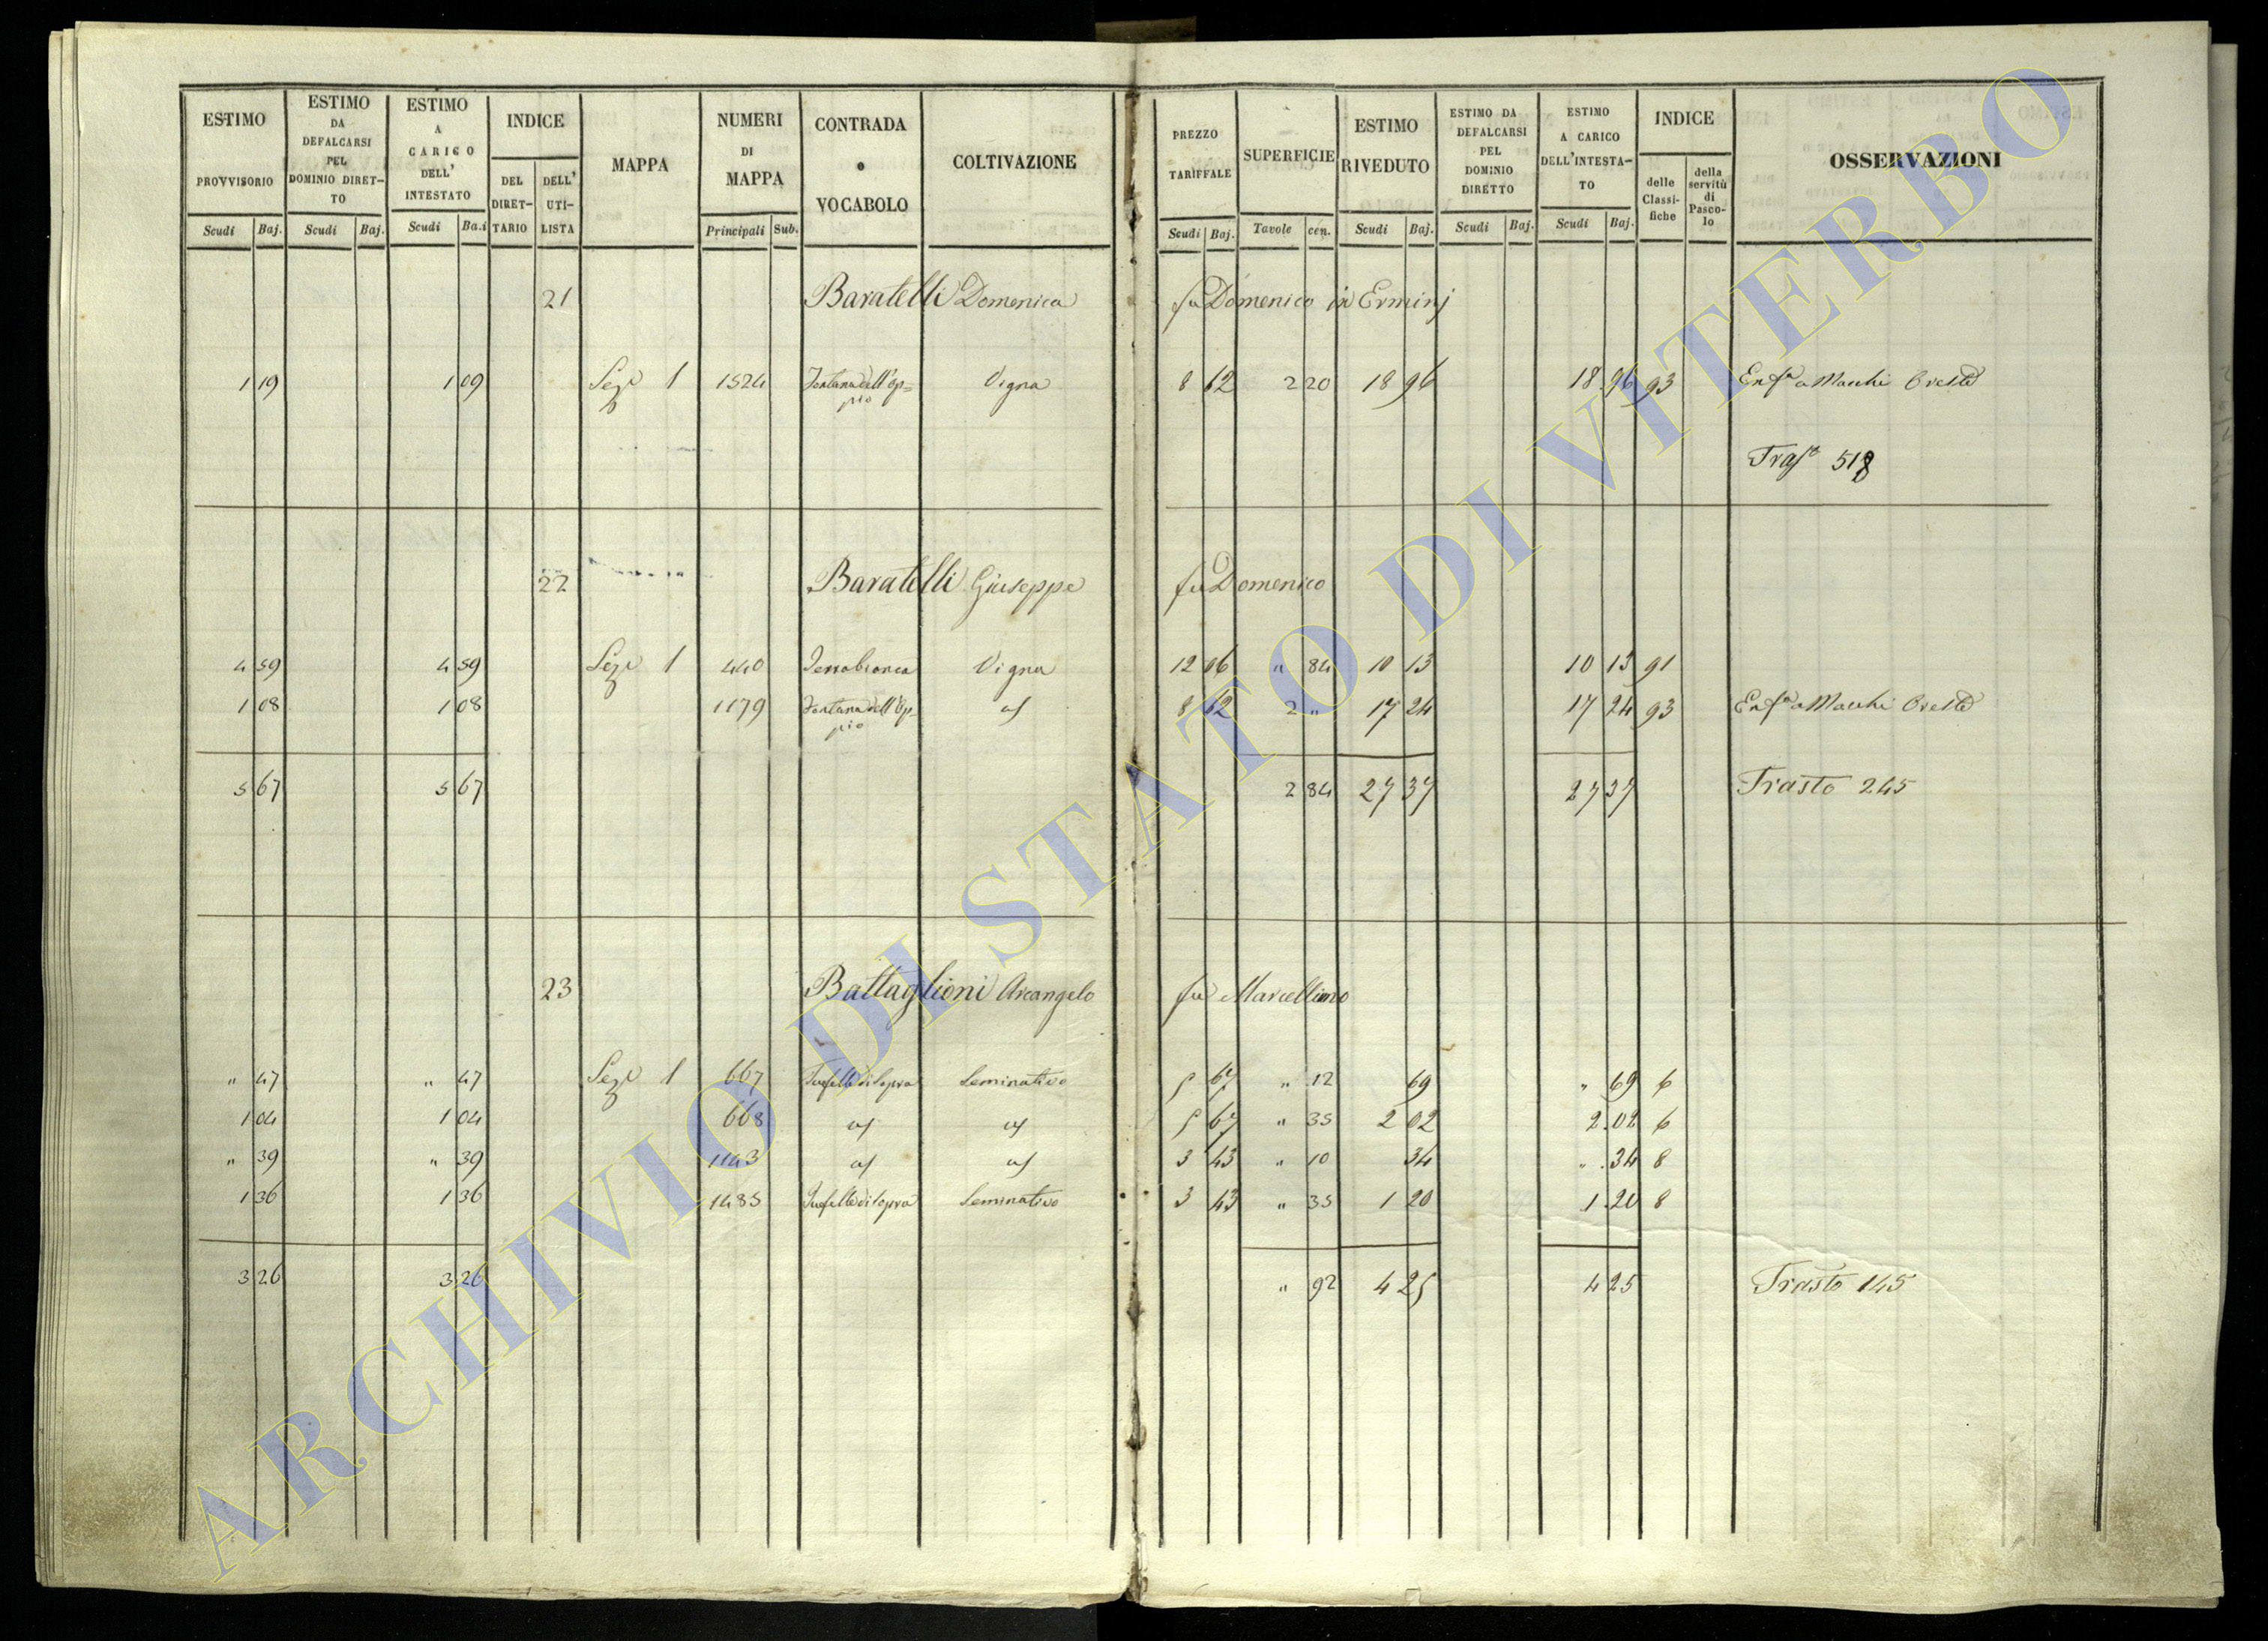 ESTIMO PROVVISORIO Scudi Baj.
ESTIMO DA DEFALCARSI PEL DOMINIO DIRET-TO Scudi Baj.
ESTIMO A CARICO DELL' INTESTATO Scudi Ba.i
INDICE DEL DIRET-TARIO DELL' UTI-LISTA
MAPPA
NUMERI DI MAPPA Principali Sub.
CONTRADA o VOCABOLO
COLTIVAZIONE
PREZZO TARIFFALE Scudi Baj.
SUPERFICIE Tavole cen.
ESTIMO RIVEDUTO Scudi Baj.
ESTIMO DA DEFALCARSI PEL DOMINIO DIRETTO Scudi Baj.
ESTIMO A CARICO DELL'INTESTA-TO Scudi Baj.
INDICE delle Classi-fiche della servitù di Pasco-lo
OSSERVAZIONI
21 Baratelli Domenica fu Domenico in Erminj
1 19 1 09 Sez.e 1 1524 Fontana dell'Op=pio Vigna 8 62 2 20 18 96 18 96 93 Enf.a a Macchi Oreste
Tras.to 518
22 Baratelli Giuseppe fu Domenico
4 59 4 59 Sez.e 1 440 Terrabianca Vigna 12 06 " 84 10 13 10 13 91
1 08 1 08 1179 Fontana dell'Op=pio 8 62 2 " 17 24 17 24 93 Enf.a a Macchi Oreste
5 67 5 67 2 84 27 37 27 37 Trasto 245
23 Battaglioni Arcangelo fu Marcellino
" 47 " 47 Sez.e 1 667 di Sopra Seminativo 5 67 " 12 69 " 69 6
1 04 1 04 668 5 67 " 35 2 02 2.02 6
" 39 " 39 1143 3 43 " 10 34 " .34 8
1 36 1 36 1485 di Sopra Seminativo 3 43 " 35 1 20 1.20 8
3 26 3 26 " 92 4 25 4 25 Trasto 145
ARCHIVIO DI STATO DI VITERBO